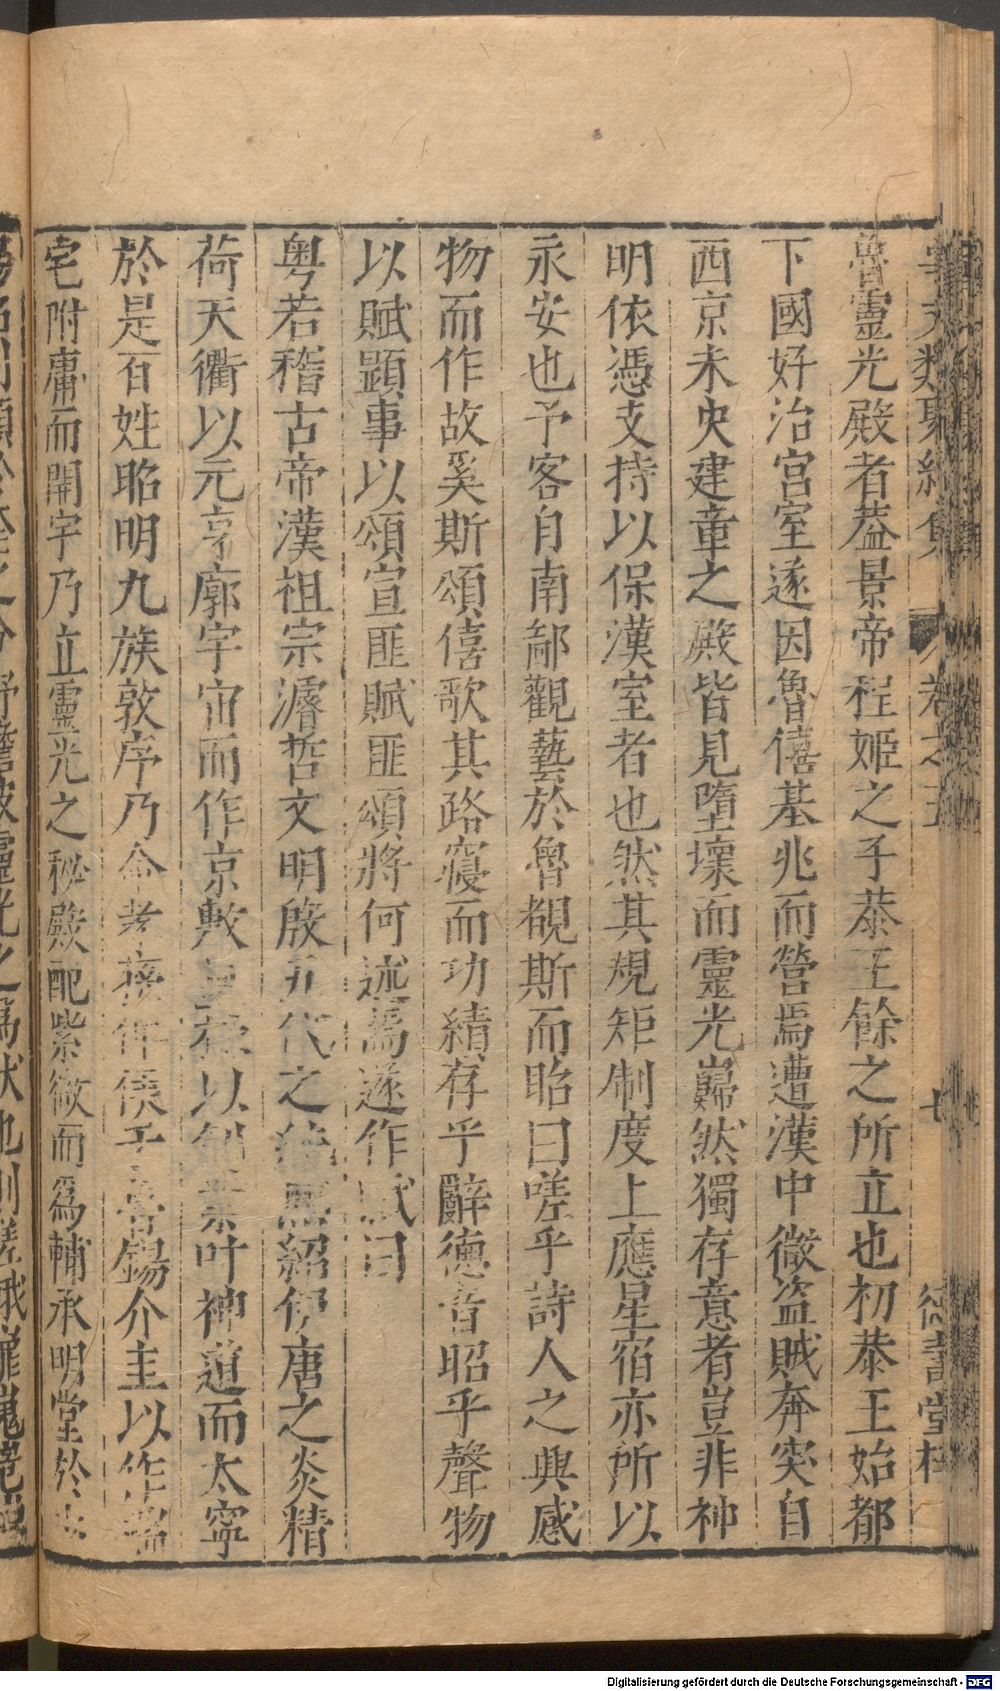 事文類聚續集 卷之五 七 德書堂梓
魯靈光殿者葢景帝程姬之子恭王餘之所立也初恭王始都
下國好治宮室遂因魯僖基兆而營焉遭漢中微盜賊奔突自
西京未央建章之殿皆見墮壞而靈光巋然獨存意者豈非神
明依憑支持以保漢室者也然其規矩制度上應星宿亦所以
永安也予客自南鄙觀藝於魯覩斯而眙曰嗟乎詩人之興感
物而作故奚斯頌僖歌其路寢而功績存乎辭德音昭乎聲物
以賦顯事以頌宣匪賦匪頌將何述焉遂作賦曰
粵若稽古帝漢祖宗濬哲文明殷五代之純熙紹伊唐之炎精
荷天衢以元亨廓宇宙而作京敷皇極以創業叶神道而太寧
於是百姓昭明九族敦序乃命孝孫俾侯于魯錫介圭以作瑞
宅附庸而開宇乃立靈光之秘殿配紫微而爲輔承明堂於
靈光之爲狀也則嵯峨
Digitalisierung gefördert durch die Deutsche Forschungsgemeinschaft - DFG